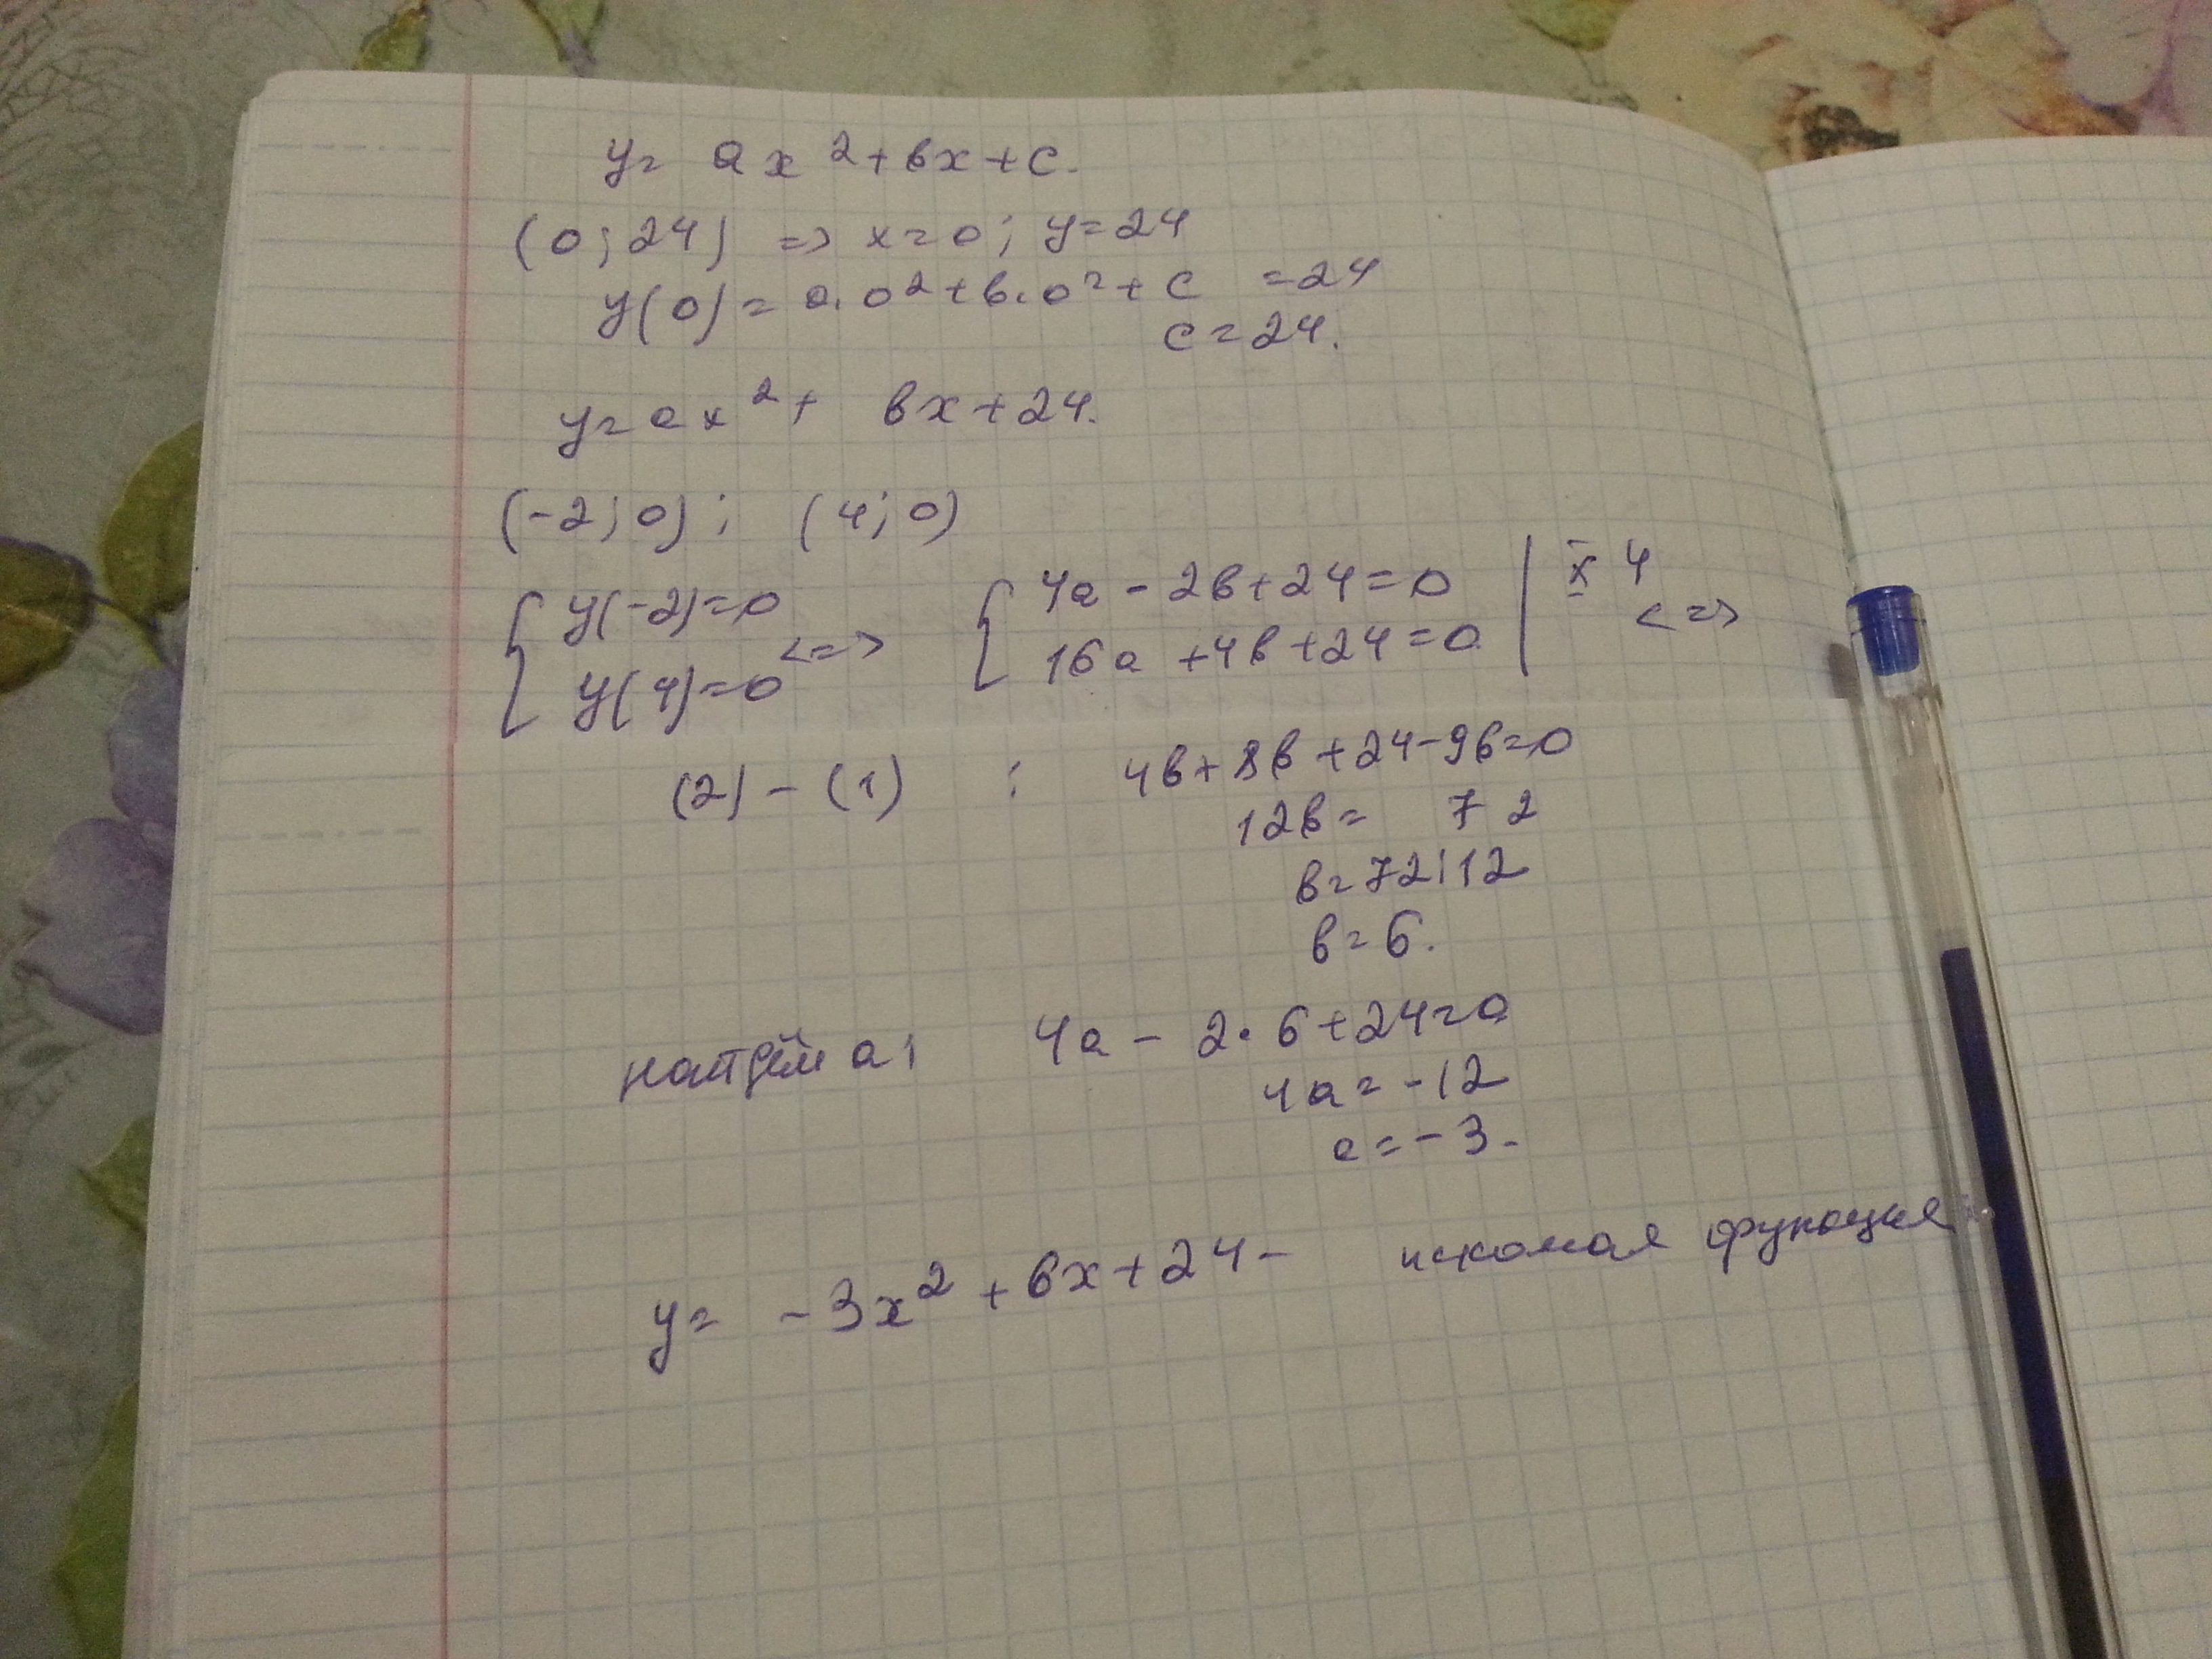 y = ax² + вx + c.
(0; 24) => x = 0; y = 24
y(0) = a·0² + в·0² + c = 24
c = 24.
y = ax² + вx + 24.
(-2; 0); (4; 0)
{ y(-2) = 0 <=> { 4a - 2в + 24 = 0 | x 4
{ y(4) = 0 { 16a + 4в + 24 = 0 | <=>
(2) - (1) : 4в + 8в + 24 - 96 = 0
12в = 72
в = 72:12
в = 6.
найдём а: 4a - 2·6 + 24 = 0
4a = -12
a = -3.
y = -3x² + 6x + 24 - искомая функция